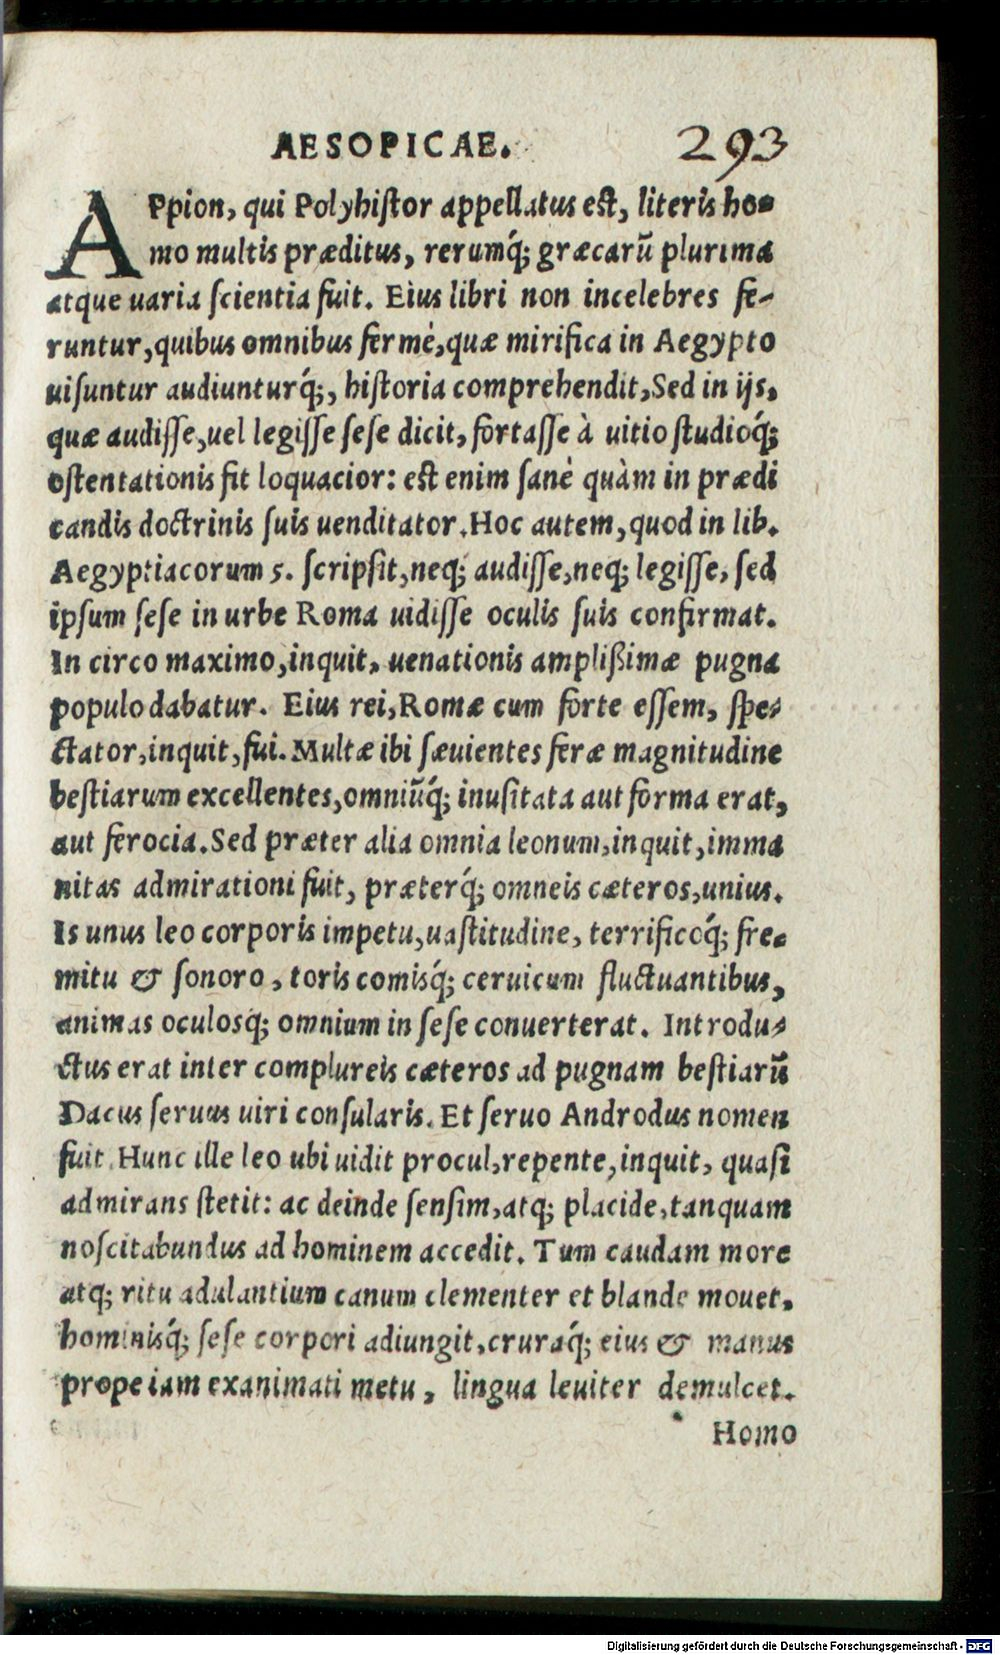 AESOPICAE. 293
APpion, qui Polyhistor appellatus est, literis ho-
mo multis præditus, rerumq́; græcarū plurima
atque uaria scientia fuit. Eius libri non incelebres fe-
runtur, quibus omnibus fermè, quæ mirifica in Aegypto
uisuntur audiunturq́;, historia comprehendit, Sed in ijs,
quæ audisse, uel legisse sese dicit, fortasse à uitio studioq́;
ostentationis fit loquacior: est enim sanè quàm in prædi
candis doctrinis suis uenditator. Hoc autem, quod in lib.
Aegyptiacorum 5. scripsit, neq; audisse, neq; legisse, sed
ipsum sese in urbe Roma uidisse oculis suis confirmat.
In circo maximo, inquit, uenationis amplißimæ pugna
populo dabatur. Eius rei, Romæ cum forte essem, spe-
ctator, inquit, fui. Multæ ibi sæuientes feræ magnitudine
bestiarum excellentes, omniūq́; inusitata aut forma erat,
aut ferocia. Sed præter alia omnia leonum, inquit, imma
nitas admirationi fuit, præterq́; omneis cæteros, unius.
Is unus leo corporis impetu, uastitudine, terrificoq́; fre-
mitu & sonoro, toris comisq́; ceruicum fluctuantibus,
animas oculosq; omnium in sese conuerterat. Introdu-
ctus erat inter complureis cæteros ad pugnam bestiarū
Dacus seruus uiri consularis. Et seruo Androdus nomen
fuit. Hunc ille leo ubi uidit procul, repente, inquit, quasi
admirans stetit: ac deinde sensim, atq; placide, tanquam
noscitabundus ad hominem accedit. Tum caudam more
atq; ritu adulantium canum clementer et blande mouet,
hominisq́; sese corpori adiungit, cruraq́; eius & manus
prope iam exanimati metu, lingua leuiter demulcet.
Homo
Digitalisierung gefördert durch die Deutsche Forschungsgemeinschaft - DFG